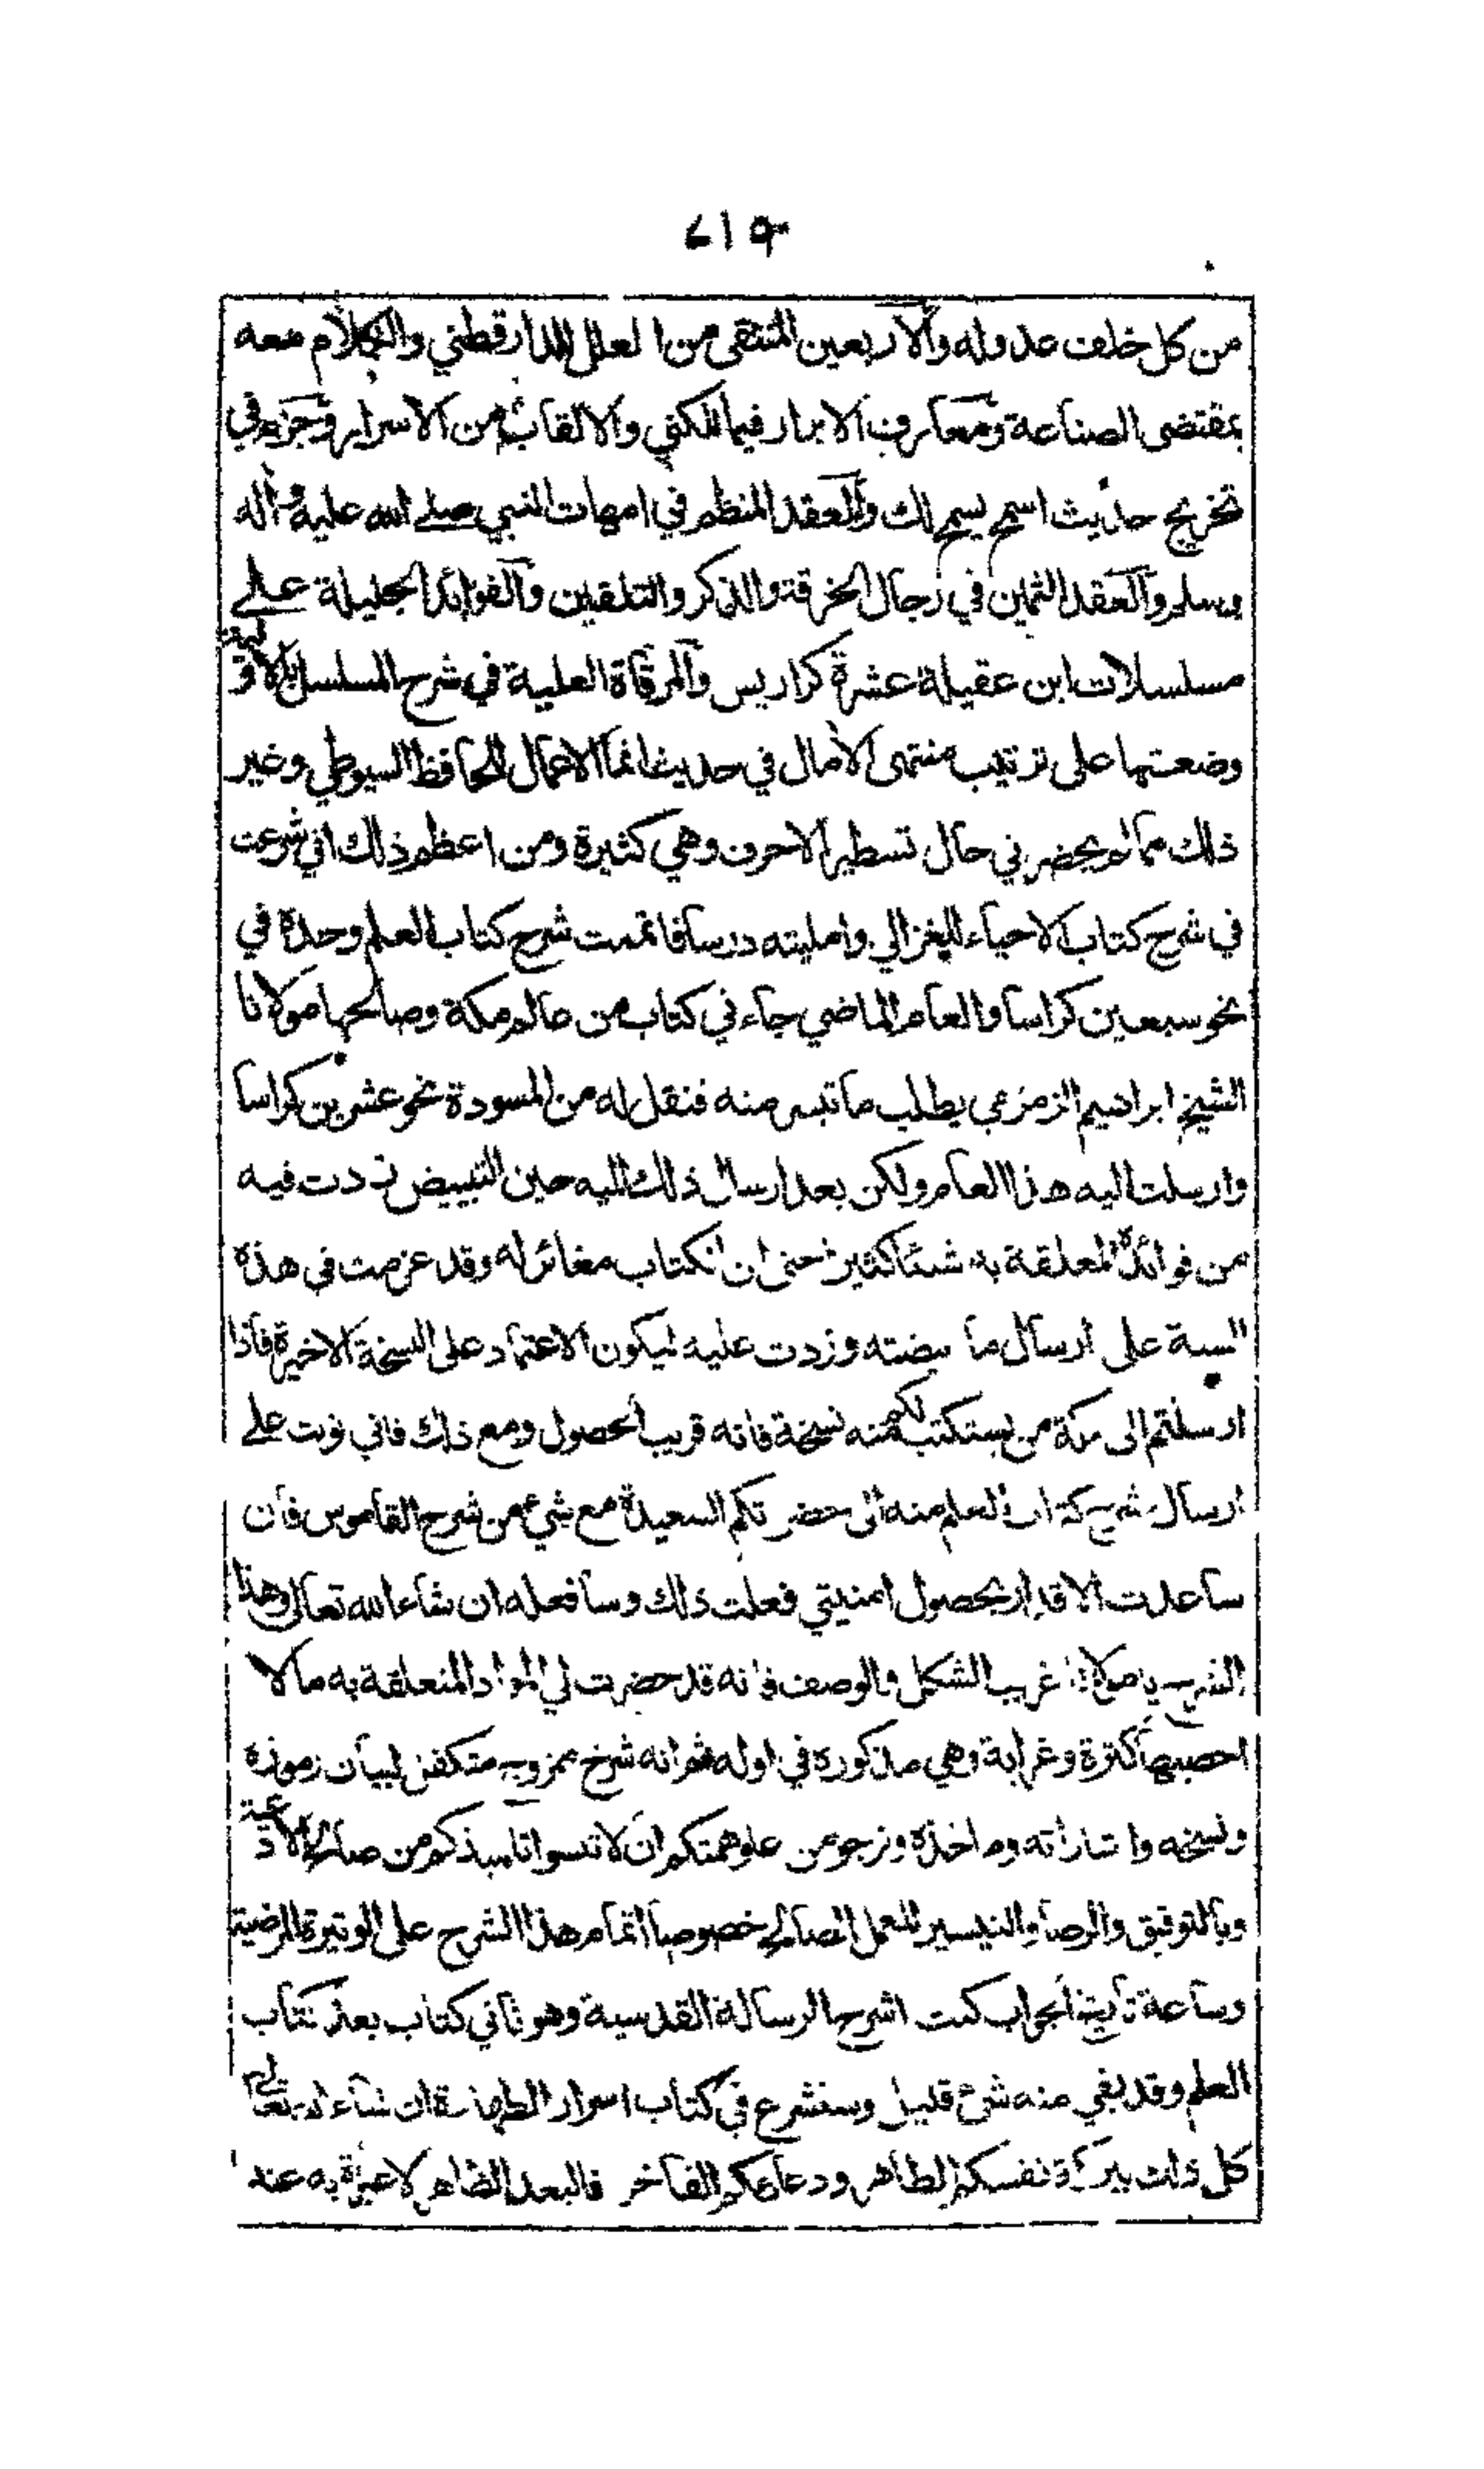 ٧١٩
من كل خلف عدوله والاربعين المنتقى من العلل للدارقطني والكلام معه
بمقتضى الصناعة ومعارف الابرار فيما للكنى والالقاب من الاسرار وجزء في
تخريج حديث اسمح يسمح لك والعقد المنظم في امهات النبي صلى الله عليه وآله
وسلم والعقد الثمين في رجال الخرقة والذكر والتلقين والفوائد الجليلة على
مسلسلات ابن عقيلة عشرة كراريس والمرقاة العلية في شرح المسلسل بالاولية
وضعتها على ترتيب منتهى الآمال في حديث انما الاعمال للحافظ السيوطي وغير
ذلك مما لم يحضرني حال تسطير الاحرف وهي كثيرة ومن اعظم ذلك اني شرعت
في شرح كتاب الاحياء للغزالي وامليته درسا فاتممت شرح كتاب العلم وحده في
نحو سبعين كراسا والعام الماضي جاءني كتاب من عالم مكة وصالحها مولانا
الشيخ ابراهيم الزمزمي يطلب ما تيسر منه فنقل له من المسودة نحو عشرين كراسا
وارسلت اليه هذا العام ولكن بعد ارسال ذلك اليه حين التبييض زدت فيه
من فوائده المعلقة به شيئا كثيرا حتى ان الكتاب مغائر له وقد عزمت في هذه
السنة على ارسال ما بيضته وزدت عليه ليكون الاعتماد على النسخة الاخيرة فاذا
ارسلتم الى مكة من يستكتب لكم منه نسخة فانه قريب الحصول ومع ذلك فاني نويت على
ارسال شرح كتاب العلم منه الى حضرتكم السعيدة مع شيء من شرح القاموس فان
ساعدت الاقدار بحصول امنيتي فعلت ذلك وسافعله ان شاء الله تعالى وهذا
الشرح يا مولانا غريب الشكل والوصف فانه قد حضرت لي المواد المتعلقة به ما لا
احصيها كثرة وغرابة وهي مذكورة في اوله ثم انه شرح ممزوج متكفل لبيان رموزه
ونسخه واشاراته وماخذه ونرجو من علو همتكم ان لا تنسوانا بمبذكم من صالح الادعية
وبالتوفيق والرضا والتيسير للعمل الصالح خصوصا اتمام هذا الشرح على الوتيرة المرضية
وساعة تاريخ الجواب كنت اشرح الرسالة القدسية وهو ثاني كتاب بعد كتاب
العلم وقد بقي منه شيء قليل وسنشرع في كتاب اسرار الطهارة ان شاء الله تعالى
كل ذلك ببركة نفسكم الطاهر ودعائكم الفاخر فالبعد الظاهر لا عبرة به عند